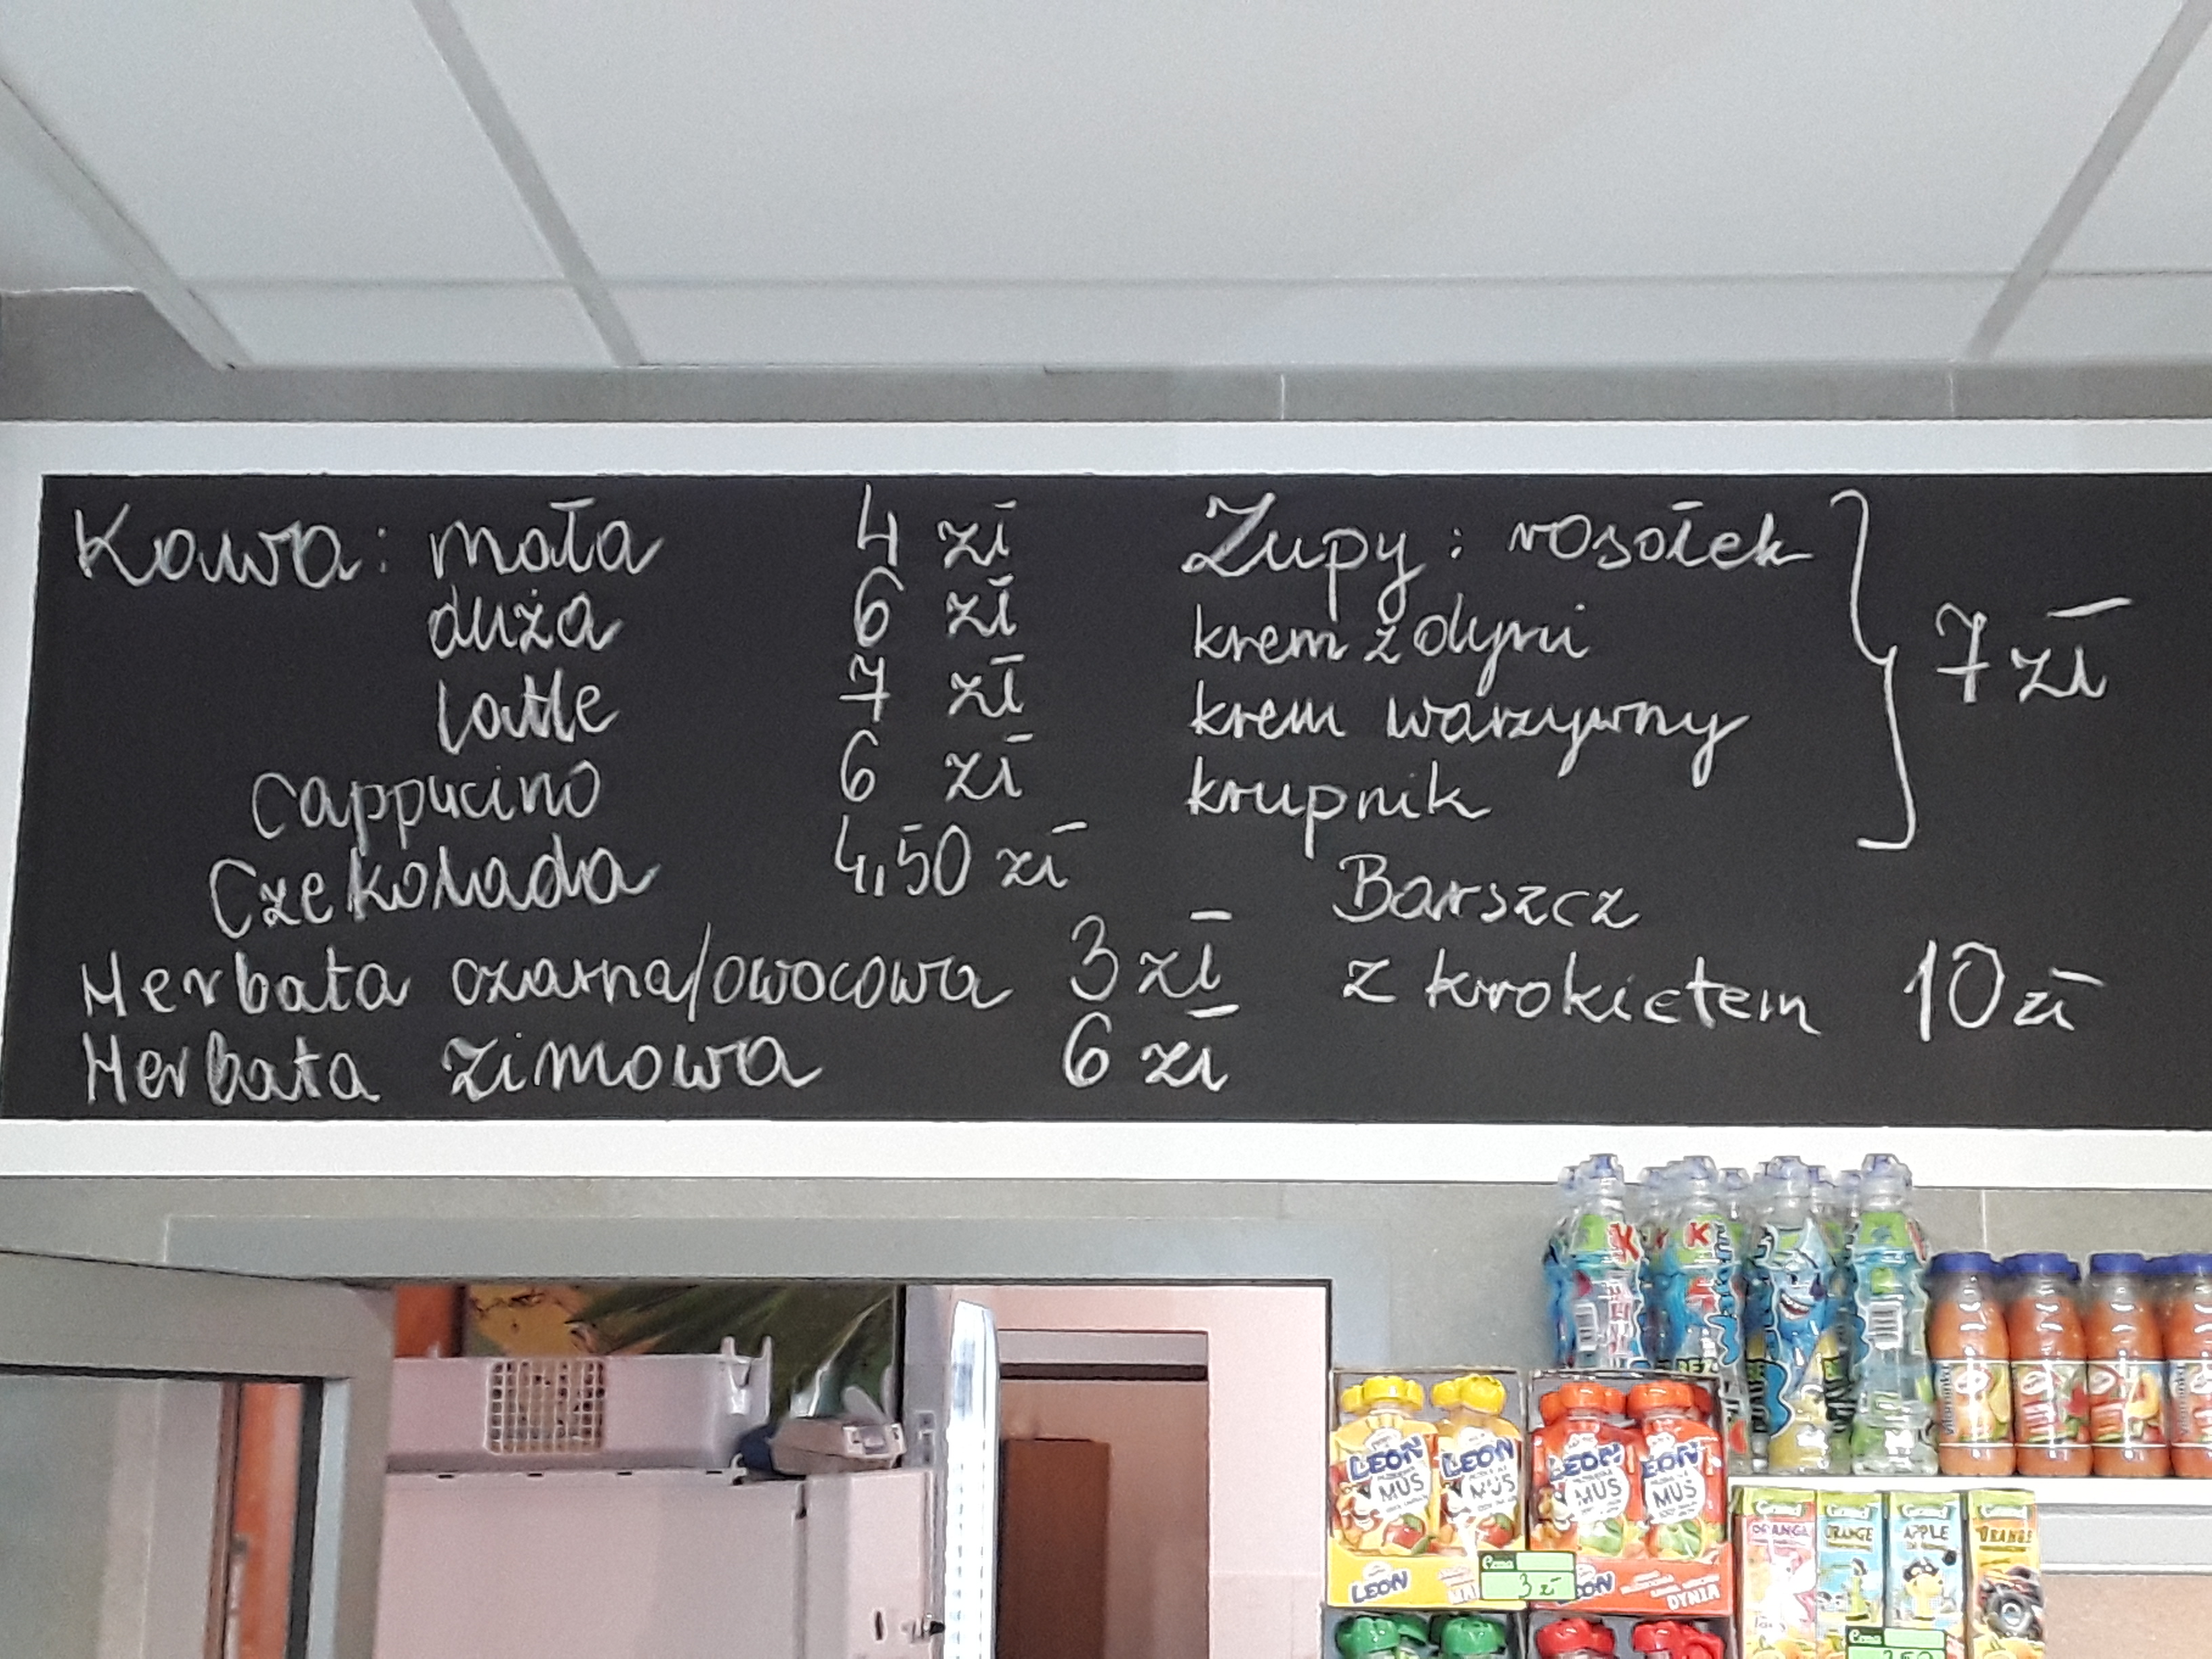 Kawa: mała 4 zł
duża 6 zł
latte 7 zł
Cappucino 6 zł
Czekolada 4,50 zł
Herbata czarna/owocowa 3 zł
Herbata zimowa 6 zł
Zupy: rosołek
krem z dyni
krem warzywny
krupnik
7 zł
Barszcz
z krokietem 10 zł
LEON LEON LEON LEON
MUS MUS MUS MUS
LEON
Cena
3 zł
DYNIA
ORANGE ORANGE APPLE ORANGE
Cena